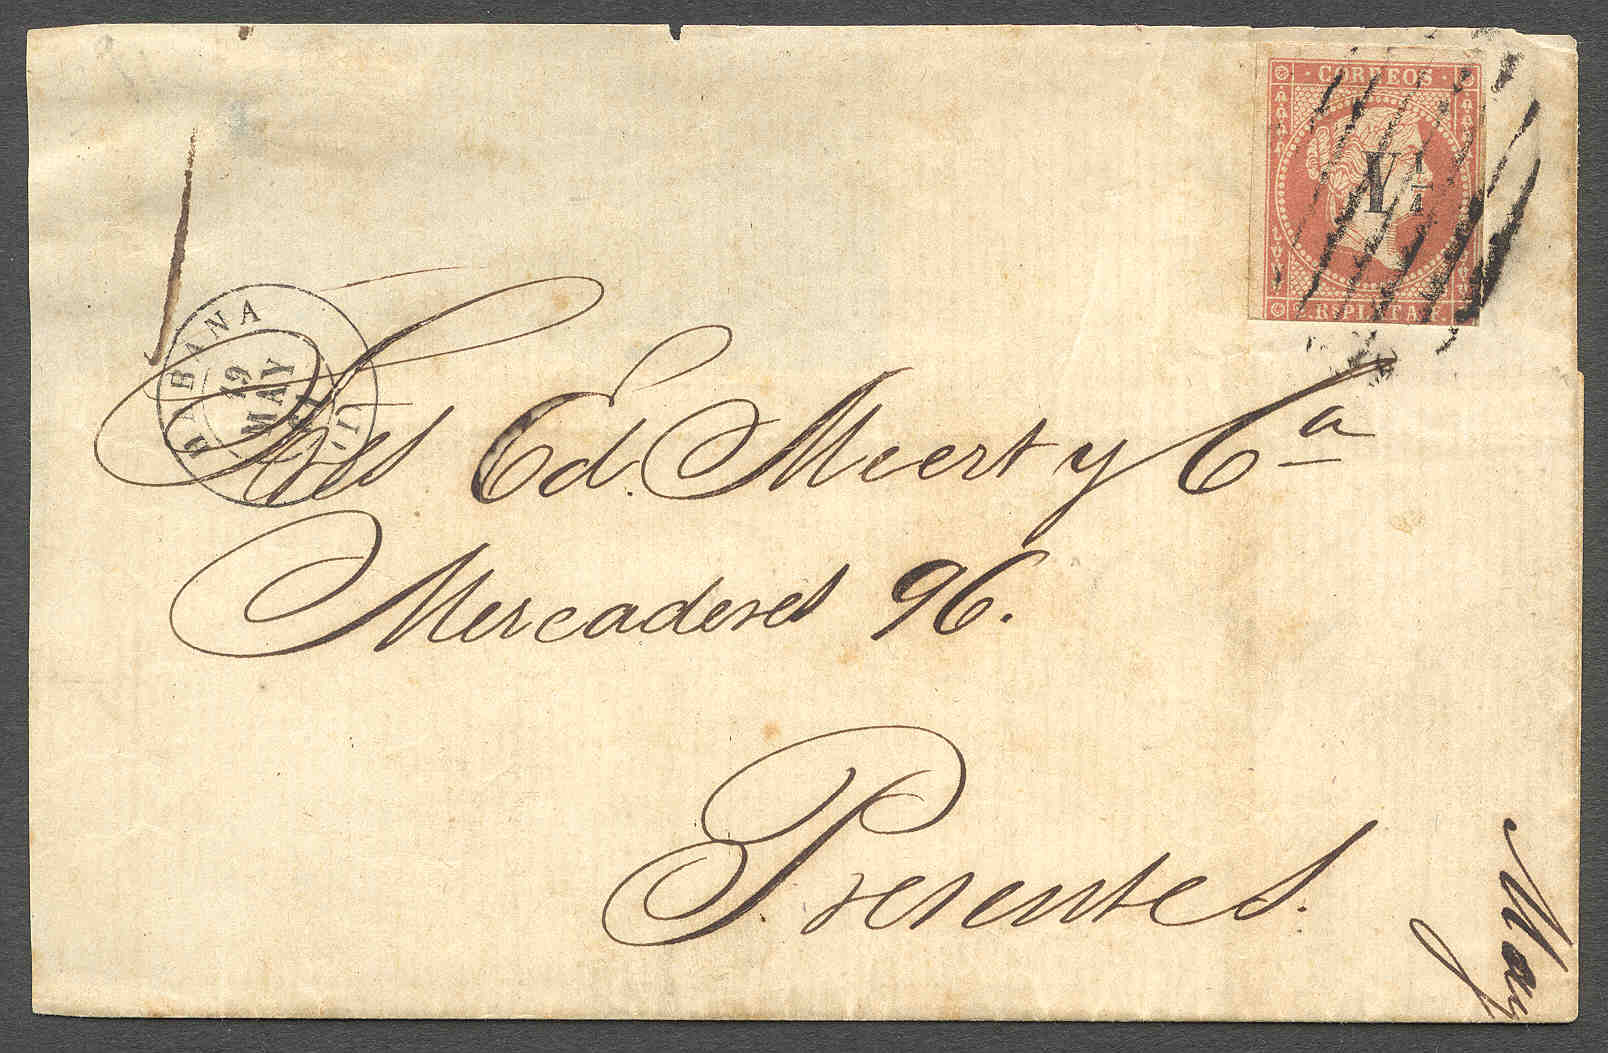 CORREOS
Y 1/4
R. PLATA F.
HABANA
19
MAY
Sres Ed. Meert y Ca
Mercaderes 96.
Presentes.
May